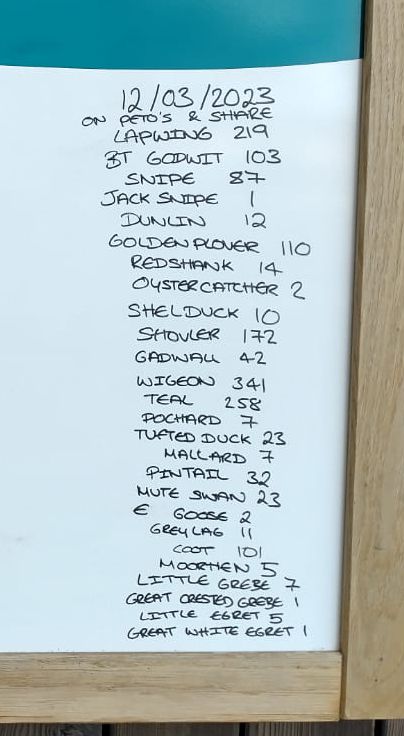 12/03/2023
ON PETO'S & SHARE
LAPWING 219
BT GODWIT 103
SNIPE 87
JACK SNIPE 1
DUNLIN 12
GOLDEN PLOVER 110
REDSHANK 14
OYSTERCATCHER 2
SHELDUCK 10
SHOVLER 172
GADWALL 42
WIGEON 341
TEAL 258
POCHARD 7
TUFTED DUCK 23
MALLARD 7
PINTAIL 32
MUTE SWAN 23
E GOOSE 2
GREYLAG 11
COOT 101
MOORHEN 5
LITTLE GREBE 7
GREAT CRESTED GREBE 1
LITTLE EGRET 5
GREAT WHITE EGRET 1